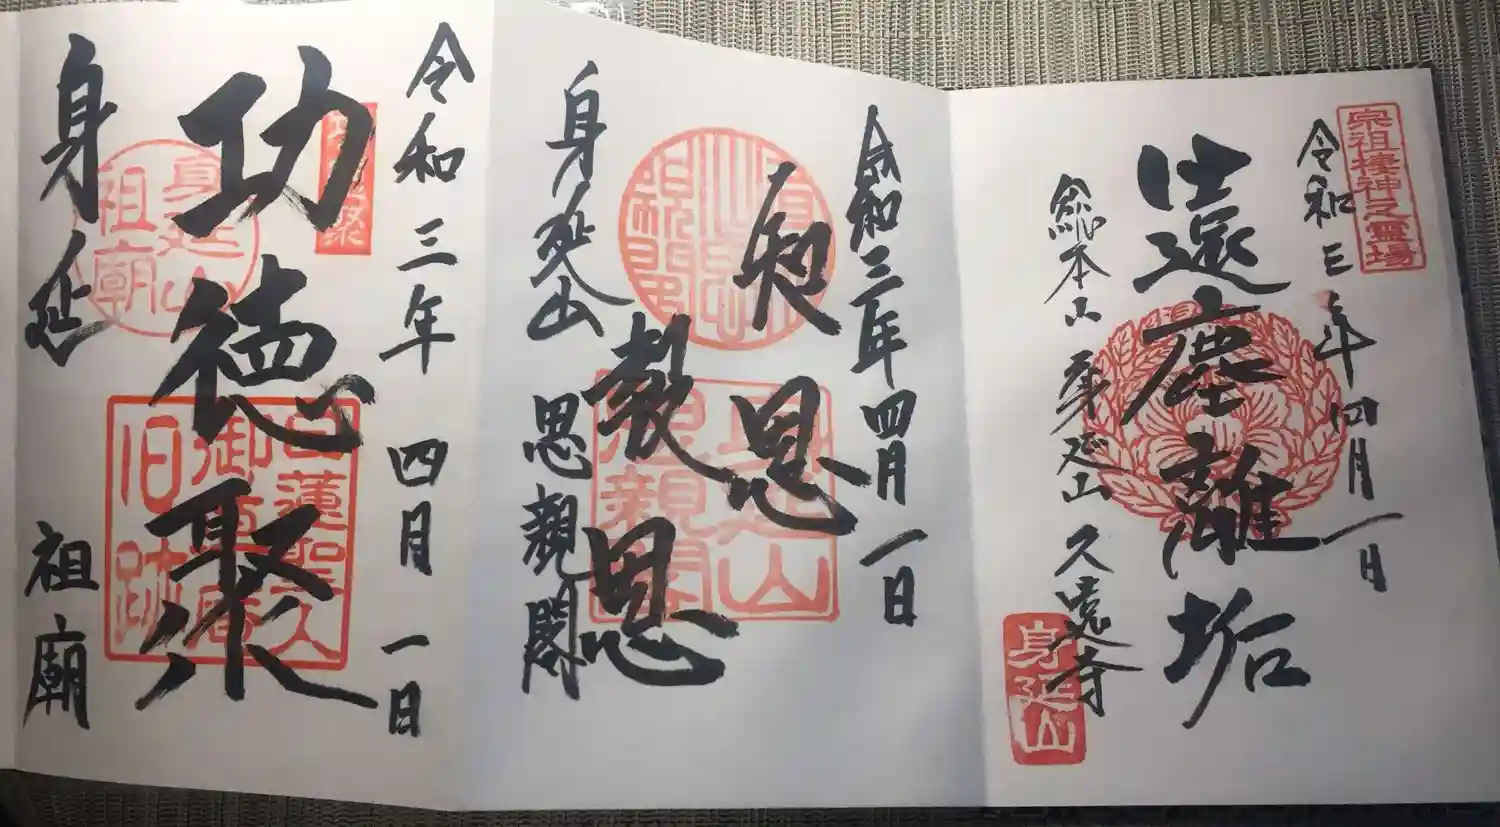 宗祖棲神之霊場
令和三年四月一日
遠塵離垢
総本山 身延山 久遠寺
身延山
令和三年四月一日
知恩
報恩
身延山 思親閣
身延山
思親閣
令和三年 四月 一日
功徳聚
身延 祖廟
身延山
祖廟
日蓮聖人
御草庵
旧跡